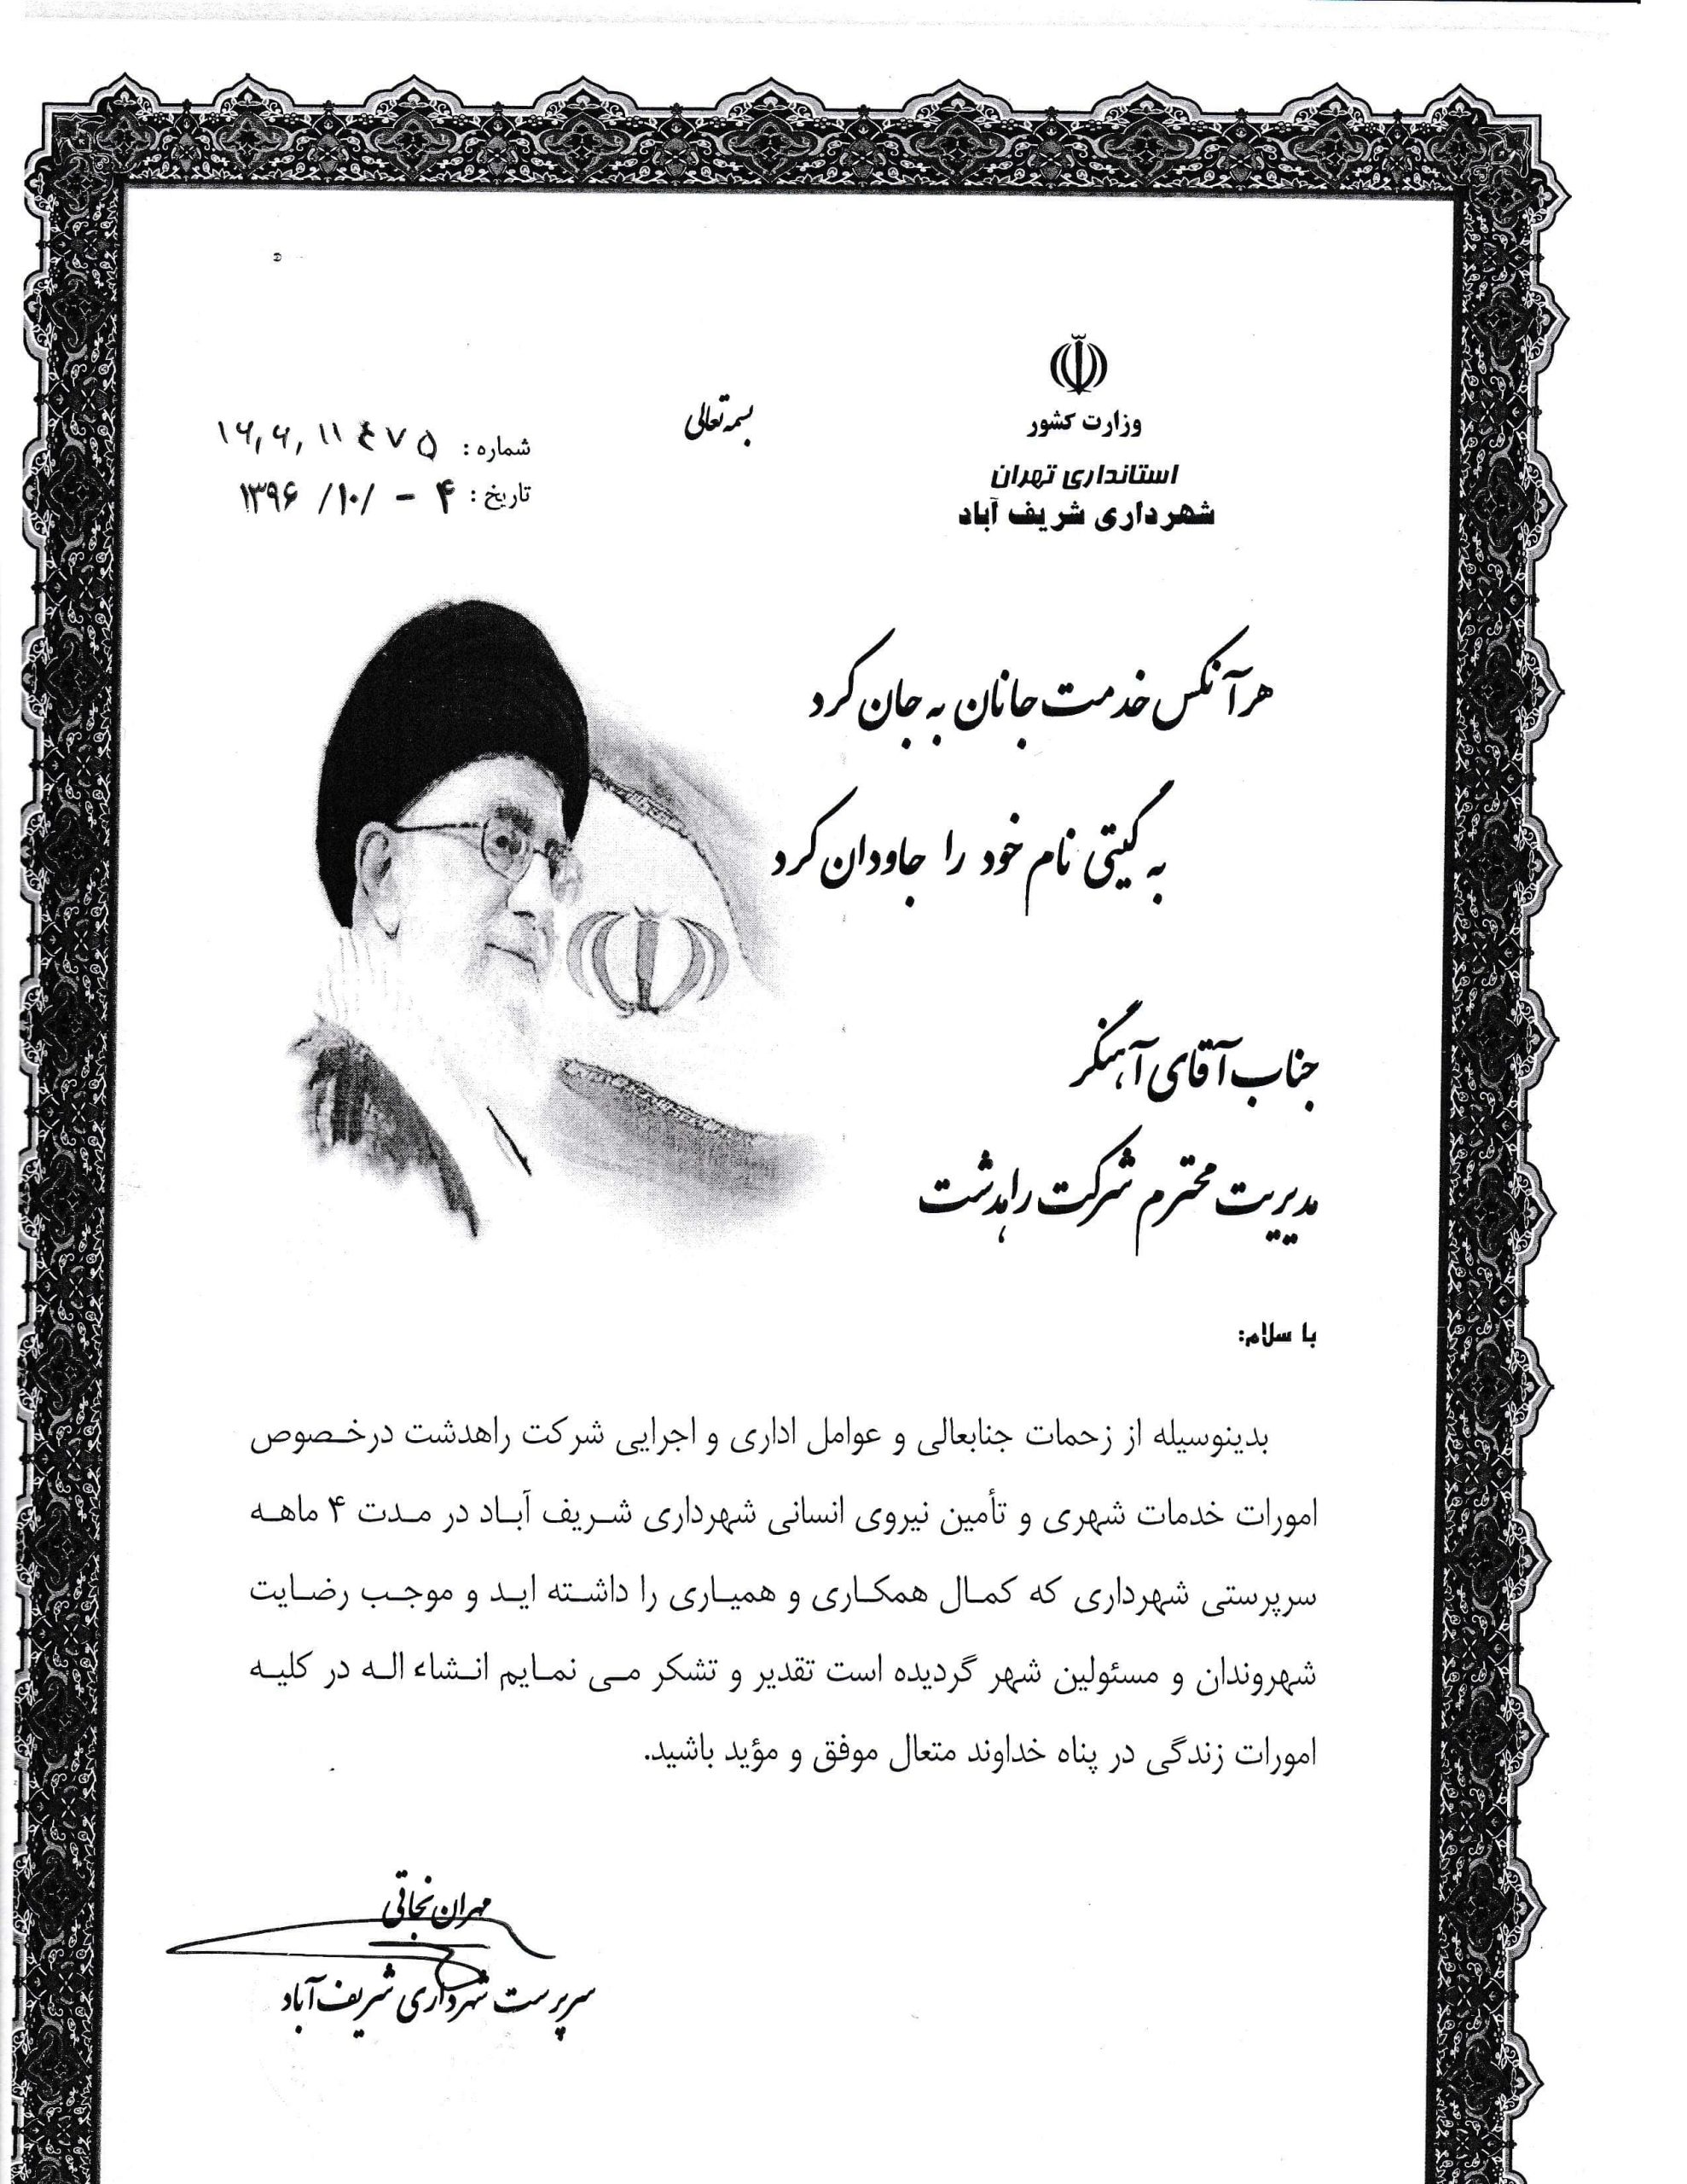 بسمه تعالی
وزارت کشور
استانداری تهران
شهرداری شریف آباد
شماره :
تاریخ : ۴ - /۱۰/ ۱۳۹۶
هر آنکس خدمت جانان به جان کرد
به گیتی نام خود را جاودان کرد
جناب آقای آهنگر
مدیریت محترم شرکت راهدشت
با سلام:
بدینوسیله از زحمات جنابعالی و عوامل اداری و اجرایی شرکت راهدشت درخصوص
امورات خدمات شهری و تأمین نیروی انسانی شهرداری شریف آباد در مدت ۴ ماهه
سرپرستی شهرداری که کمال همکاری و همیاری را داشته اید و موجب رضایت
شهروندان و مسئولین شهر گردیده است تقدیر و تشکر می نمایم انشاء اله در کلیه
امورات زندگی در پناه خداوند متعال موفق و مؤید باشید.
مهران نجاتی
سرپرست شهرداری شریف آباد